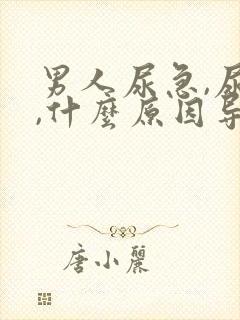 男人尿急,尿
,什麼原因導
唐小麗